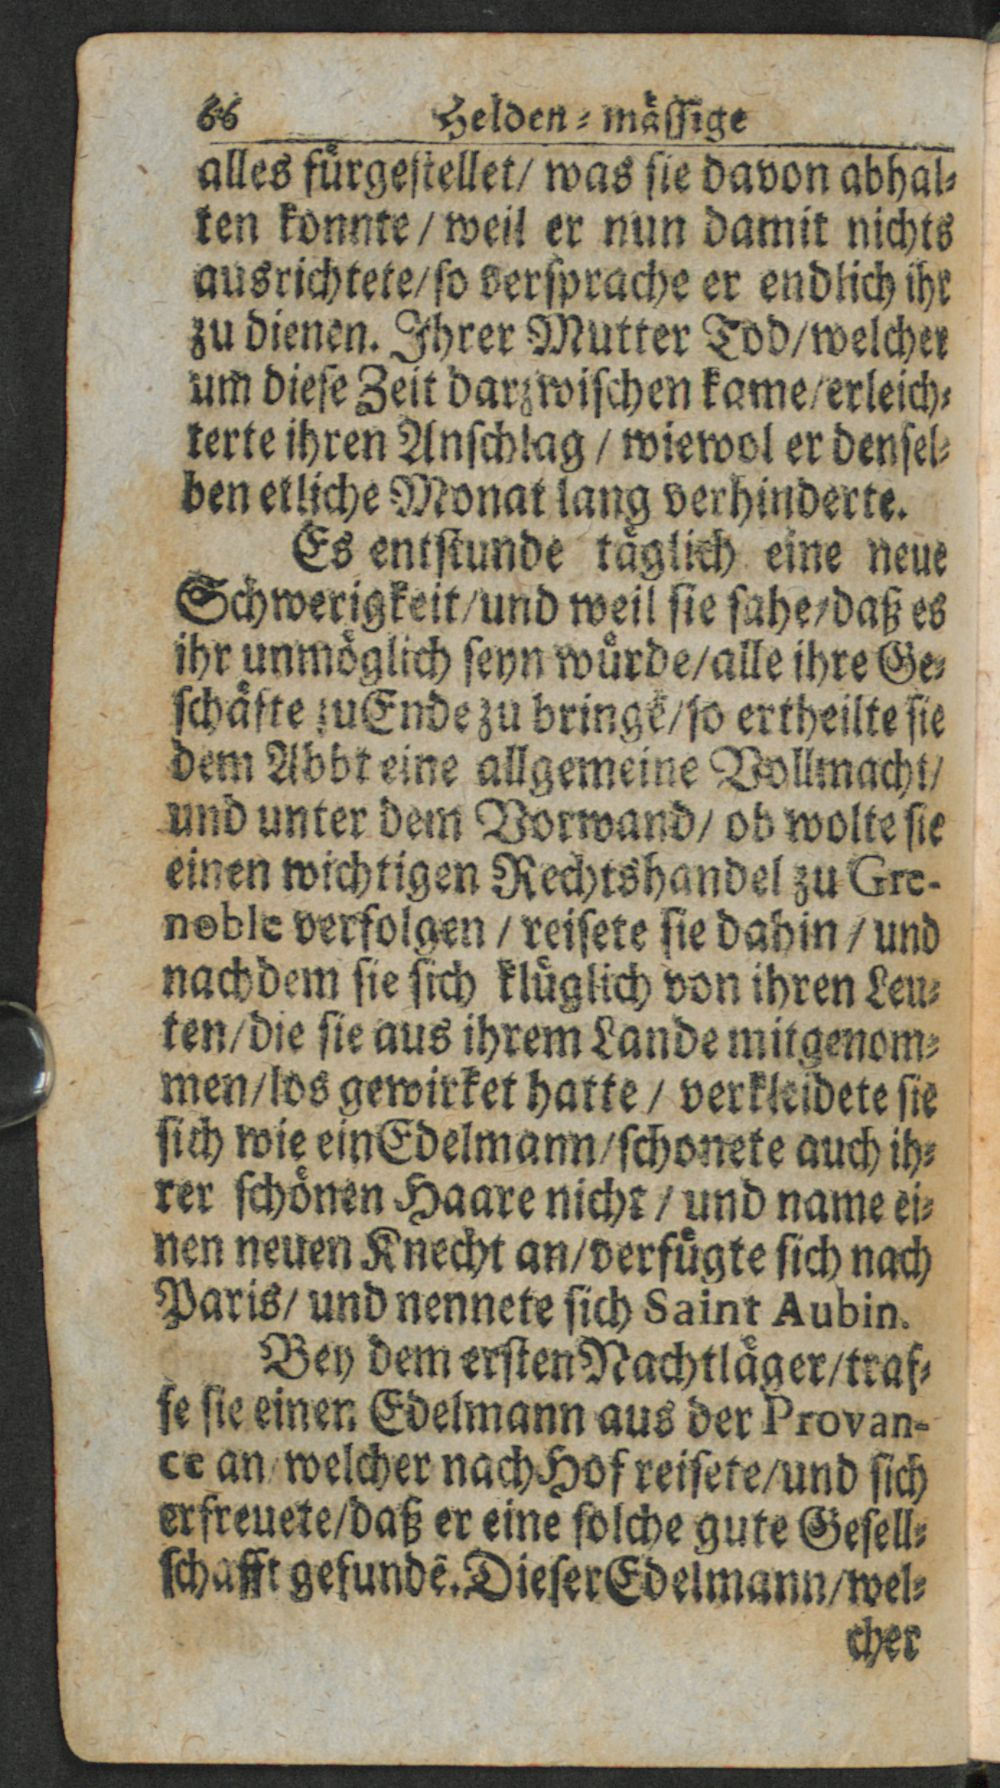 66 Helden-mäſſige
alles fürgeſtellet/ was ſie davon abhal-
ten konnte / weil er nun damit nichts
ausrichtete/ſo verſprache er endlich ihr
zu dienen. Ihrer Mutter Tod/welcher
um dieſe Zeit darzwiſchen kame/erleich-
terte ihren Anſchlag / wiewol er denſel-
ben etliche Monat lang verhinderte.
Es entſtunde täglich eine neue
Schwerigkeit/und weil ſie ſahe/daß es
ihr unmöglich ſeyn würde/alle ihre Ge-
ſchäfte zu Ende zu bringē/ſo ertheilte ſie
dem Abbt eine allgemeine Vollmacht/
und unter dem Vorwand/ ob wolte ſie
einen wichtigen Rechtshandel zu Gre-
noble verfolgen / reiſete ſie dahin / und
nachdem ſie ſich klüglich von ihren Leu-
ten/die ſie aus ihrem Lande mitgenom-
men/los gewirket hatte / verkleidete ſie
ſich wie ein Edelmann/ſchonete auch ih-
rer ſchönen Haare nicht / und name ei-
nen neuen Knecht an/verfügte ſich nach
Paris/ und nennete ſich Saint Aubin.
Bey dem erſten Nachtläger/traf-
fe ſie einen Edelmann aus der Provan-
ce an/welcher nach Hof reiſete/und ſich
erfreuete/daß er eine ſolche gute Geſell-
ſchafft gefundē. Dieſer Edelmann/wel-
cher